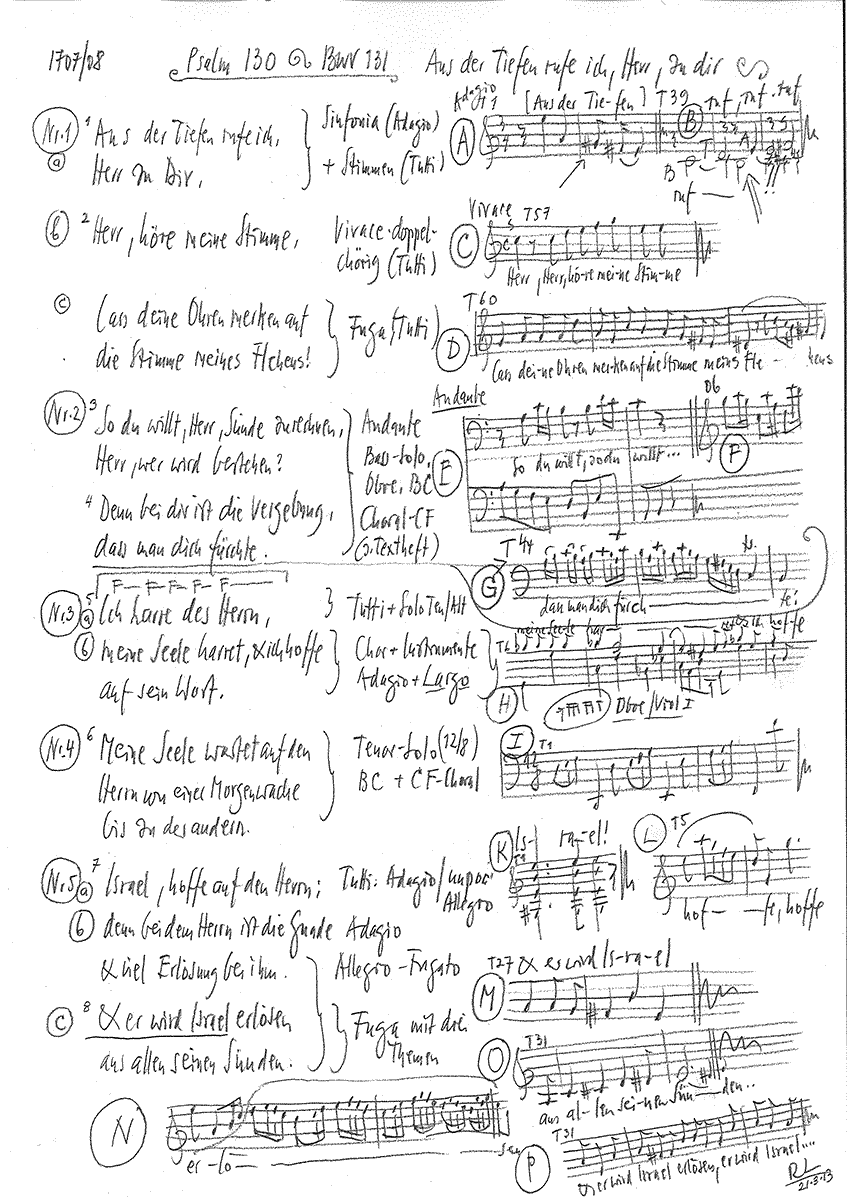 1707/08 Psalm 130 BWV 131 Aus der Tiefen rufe ich, Herr, zu dir
Nr.1 a 1 Aus der Tiefen rufe ich, Sinfonia (Adagio)
Herr zu Dir. + Stimmen (Tutti)
Adagio T1 [Aus der Tie-fen] T39 B ruf, ruf, ruf
A
B T A
ruf
b 2 Herr, höre meine Stimme, Vivace-doppel-
chörig (Tutti)
Vivace T57
C
Herr, Herr, höre mei-ne Stim-me
c Lass deine Ohren merken auf Fuga (Tutti)
die Stimme meines Flehens!
T60
D
Lass dei-ne Ohren mer-ken auf die Stimme meins Fle - hens
Nr.2 3 So du willt, Herr, Sünde zurechnen, Andante
Herr, wer wird bestehen? Bass-Solo,
Oboe, BC
4 Denn bei dir ist die Vergebung, Choral-CF
dass man dich fürchte. (s. Textheft)
Andante
E
So du willt, so du willt...
F
T44
G
dass man dich fürch te.
F-F-F-F-F
Nr.3 a 5 Ich harre des Herrn, Tutti + Solo Ten/Alt
b meine Seele harret, & ich hoffe Chor + Instrumente
auf sein Wort. Adagio + Largo
meine Seele har
H
Oboe/Viol I
Nr.4 6 Meine Seele wartet auf den Tenor-Solo (12/8)
Herrn von einer Morgenwache BC + CF-Choral
bis zu der andern.
I T1
12/8
Nr.5 a 7 Israel, hoffe auf den Herrn; Tutti: Adagio/un poc'
Allegro
K Is- ra-el!
T1
L T5
hof - fe, hoffe
b denn bei dem Herrn ist die Gnade Adagio
& viel Erlösung bei ihm. Allegro-Fugato
c 8 & er wird Israel erlösen Fuga mit drei
aus allen seinen Sünden. Themen
T27 & es wird Is-ra-el
M
O T31
aus al-len sei-nen Sün - den..
N
er-lö sen
P T31
& er wird Israel erlösen, er wird Israel....
RL
21.3.13